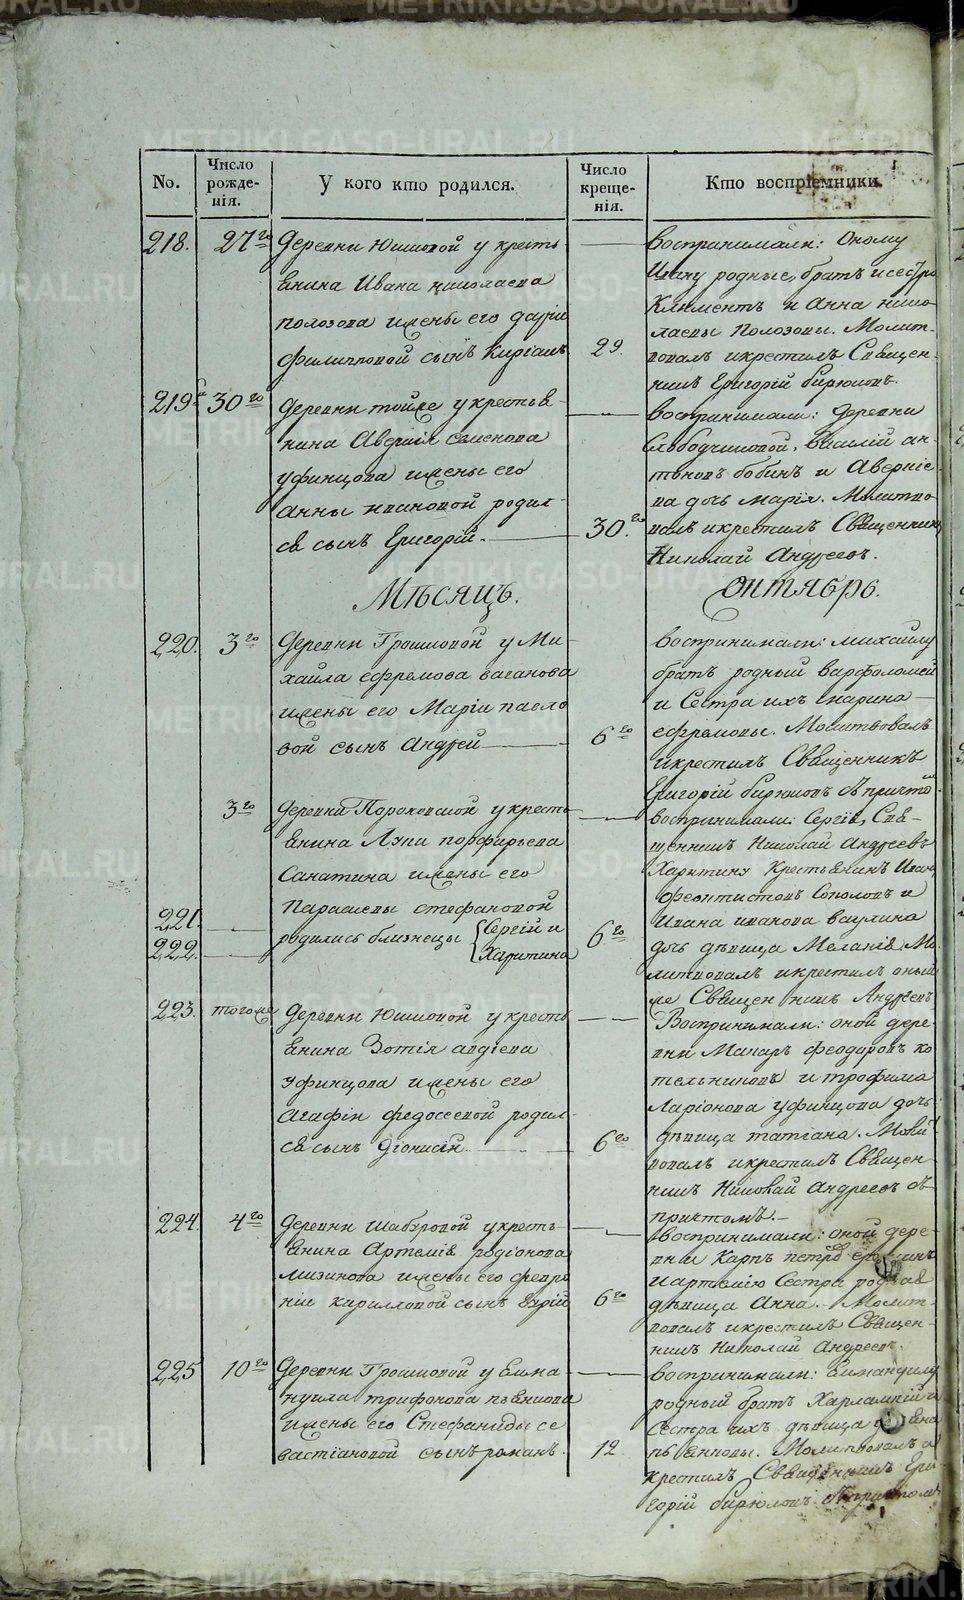 METRIKI.GASO-URAL.RU
No.
Число рожде-
нія.
У кого кто родился.
Число креще-
нія.
Кто воспріемники.
218. 27го Деревни Юшиовой у кресть
янина Ивана николаева
полозова и жены его даріи
филипповой сынъ Киріакъ
29.
воспринимали: Оному
Ивану родные, братъ и сестра
Климентъ и Анна нико-
лаевы Полозовы. Молит-
вовалъ и крестилъ Священ-
никъ Григорій бирюковъ.
219 30го Деревни тойже у крестья-
нина Аверкія семенова
уфинцова и жены его
Анны ивановой родил-
ся сынъ Григорій.
30го
воспринимали: деревни
Слободчиковой, Василій ан-
тоновъ бобинъ и Аверкіе-
ва дочь марія. Молитво-
валъ и крестилъ Священникъ
Николай Андреевъ.
Мѣсяцъ. октябрь.
220. 3го Деревни Грошиовой у Ми-
хаила ефремова ваганова
и жены его Маріи павло
вой сынъ Андрей
6го
воспринимали: михаилу
братъ родный варфоломей
и Сестра ихъ марина
ефремовы. Молитвовалъ
и крестилъ Священникъ
Григорій бирюковъ съ причто
3го Деревни Пороховской у кресть
янина Лупа порфирьева
Санатина и жены его
Параскевы стефановой
221.
222.
родились близнецы {Сергій и
Харитина
6го
воспринимали: Сергія, Свя-
щенникъ Николай Андреевъ
Харитину Крестьянинъ Иван
феоктистовъ Соколовъ и
Ивана иванова ваулина
дочь дѣвица Меланія. Мо
литвовалъ и крестилъ оный
же Священникъ Андреевъ
223. тогоже Деревни Юшиовой у кресть
янина Зотія авдіева
уфинцова и жены его
Агафіи федосеевой родил-
ся сынъ діонисій.
6го
Воспринимали: оной дере
вни Макаръ феодоровъ ко
тельниковъ и трофима
Ларіонова уфинцова дочь
дѣвица татіана. Молит
вовалъ и крестилъ Священ-
никъ Николай Андреевъ съ
причтомъ.
224. 4го Деревни шабуровой у кресть-
янина Артемія родіонова
мизинова и жены его февро
ніи кирилловой сынъ
6го
воспринимали: оной дере-
вни Карпъ петровъ
и артемію Сестра родная
дѣвица Анна. Молит-
вовалъ и крестилъ Священ-
никъ Николай Андреевъ.
225 10го Деревни Грошиовой у Емма-
нуила трифонова пьянкова
и жены его Стефаниды се
вастіановой сынъ романъ.
12.
воспринимали: Еммануилу
родный братъ Харлампій и
Сестра ихъ дѣвица
пьянковы. Молитвовалъ и
крестилъ Священникъ Гри-
горій бирюковъ съ причтомъ